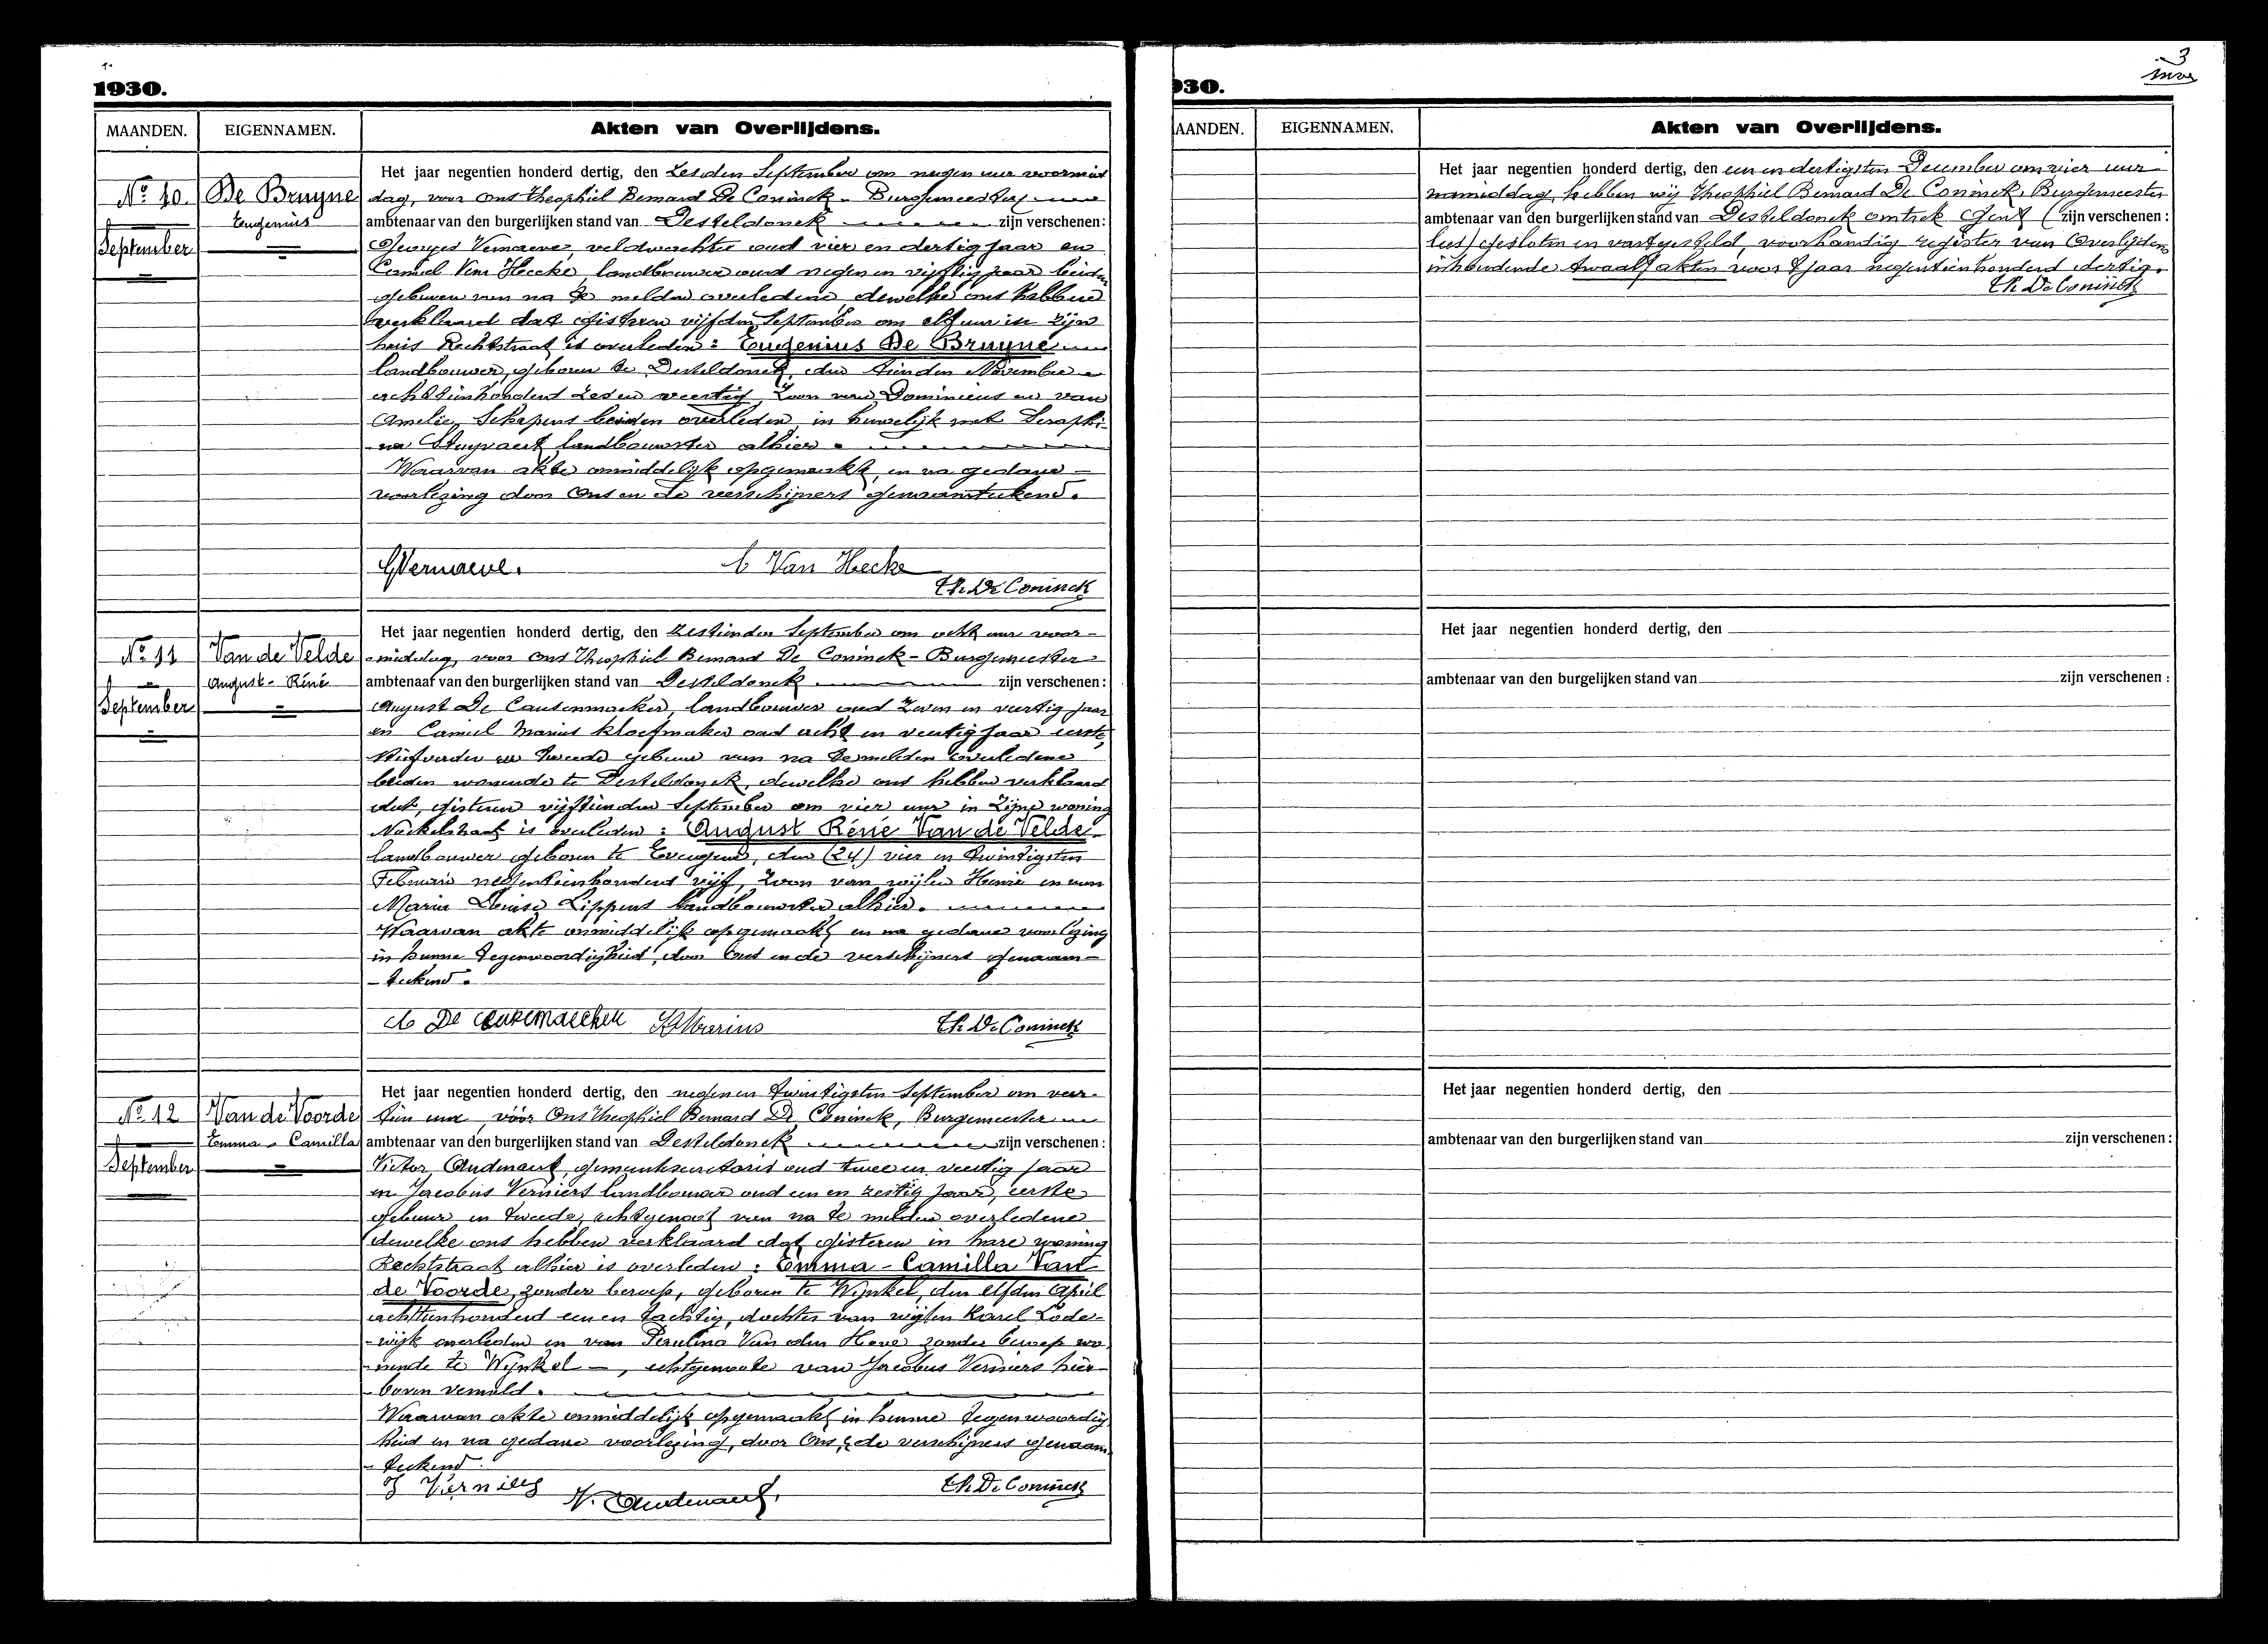 1930.
MAANDEN. EIGENNAMEN. Akten van Overlijdens.
Nº 10.
September
De Bruyne
Eugenius
Het jaar negentien honderd dertig, den zesden September om negen uur voormid
dag, voor ons Theophiel Bernard De Coninck - Burgemeester
ambtenaar van den burgerlijken stand van Desteldonck zijn verschenen:
Georges Vernaeve, veldwachter oud vier en dertig jaar en
Camiel Van Hecke, landbouwer oud negen en vijftig jaar beiden
geburen van na te melden overledene, dewelke ons hebben
verklaard dat gisteren vijfden September om elf uur in zijn
huis Rechtstraat is overleden: Eugenius De Bruyne
landbouwer, geboren te Desteldonck, den tienden November
achttienhonderd zes en veertig, zoon van Dominicus en van
Amelie Schepens beiden overleden, in huwelijk met Seraphi-
na Stuyvaert landbouwster alhier.
Waarvan akte onmiddelijk opgemaakt, en na gedane
voorlezing door Ons en de verschijners genaamteekend.
GVernaeve. C Van Hecke
Th. De Coninck
Nº 11
September
Van de Velde
August - Réné
Het jaar negentien honderd dertig, den zestienden September om acht uur voor-
middag, voor ons Theophiel Bernard De Coninck - Burgemeester
ambtenaar van den burgerlijken stand van Desteldonck zijn verschenen:
August De Causemaeker, landbouwer oud zeven en veertig jaar
en Camiel Marius kloefmaker oud acht en veertig jaar eerste,
stiefvader en tweede gebuur van na te melden overledene
beiden wonende te Desteldonck, dewelke ons hebben verklaard
dat, gisteren vijftienden September om vier uur in zijne woning
Nackelstraat is overleden: August Réné Van de Velde
landbouwer geboren te Evergem, den (24) vier en twintigsten
Februari negentienhonderd vijf, zoon van wijlen Henri en van
Maria Louise Lippens landbouwster alhier.
Waarvan akte onmiddelijk opgemaakt en na gedane voorlezing
in hunne tegenwoordigheid, door Ons en de verschijners genaam-
- teekend.
A De Causemaecker Marius Th. De Coninck
Nº 12
September
Van de Voorde
Emma - Camilla
Het jaar negentien honderd dertig, den negen en twintigsten September om veer-
tien uur, vóór Ons Theophiel Bernard De Coninck, Burgemeester
ambtenaar van den burgerlijken stand van Desteldonck zijn verschenen:
Victor Audenaert, gemeentesecretaris oud twee en veertig jaar
en Jacobus Verniers landbouwer oud een en zestig jaar, eerste
gebuur en tweede, echtgenoot van na te melden overledene
dewelke ons hebben verklaard dat gisteren in hare woning
Rechtstraat alhier is overleden: Emma - Camilla Van
de Voorde, zonder beroep, geboren te Wynkel, den elfden April
achttienhonderd een en tachtig, dochter van wijlen Karel Lode-
- wijk overleden en van Paulina Van den Heve zonder beroep wo-
- nende te Wynkel -, echtgenoote van Jacobus Verniers hier
- boven vermeld.
Waarvan akte onmiddelijk opgemaakt in hunne tegenwoordig
heid en na gedane voorlezing, door Ons & de verschijners genaam
- teekend.
J Verniers V. Audenaert. Th. De Coninck
3
930.
AANDEN. EIGENNAMEN. Akten van Overlijdens.
Het jaar negentien honderd dertig, den een en dertigsten December om vier uur
namiddag, hebben wij Theophiel Bernard De Coninck, Burgemeester
ambtenaar van den burgerlijken stand van Desteldonck omtrek Gent ( zijn verschenen :
lees) gesloten en vastgesteld, voorhandig register van Overlijdens
inhoudende twaalf akten voor 't jaar negentienhonderd dertig.
Th. De Coninck
Het jaar negentien honderd dertig, den
ambtenaar van den burgelijken stand van zijn verschenen :
Het jaar negentien honderd dertig, den
ambtenaar van den burgerlijken stand van zijn verschenen :